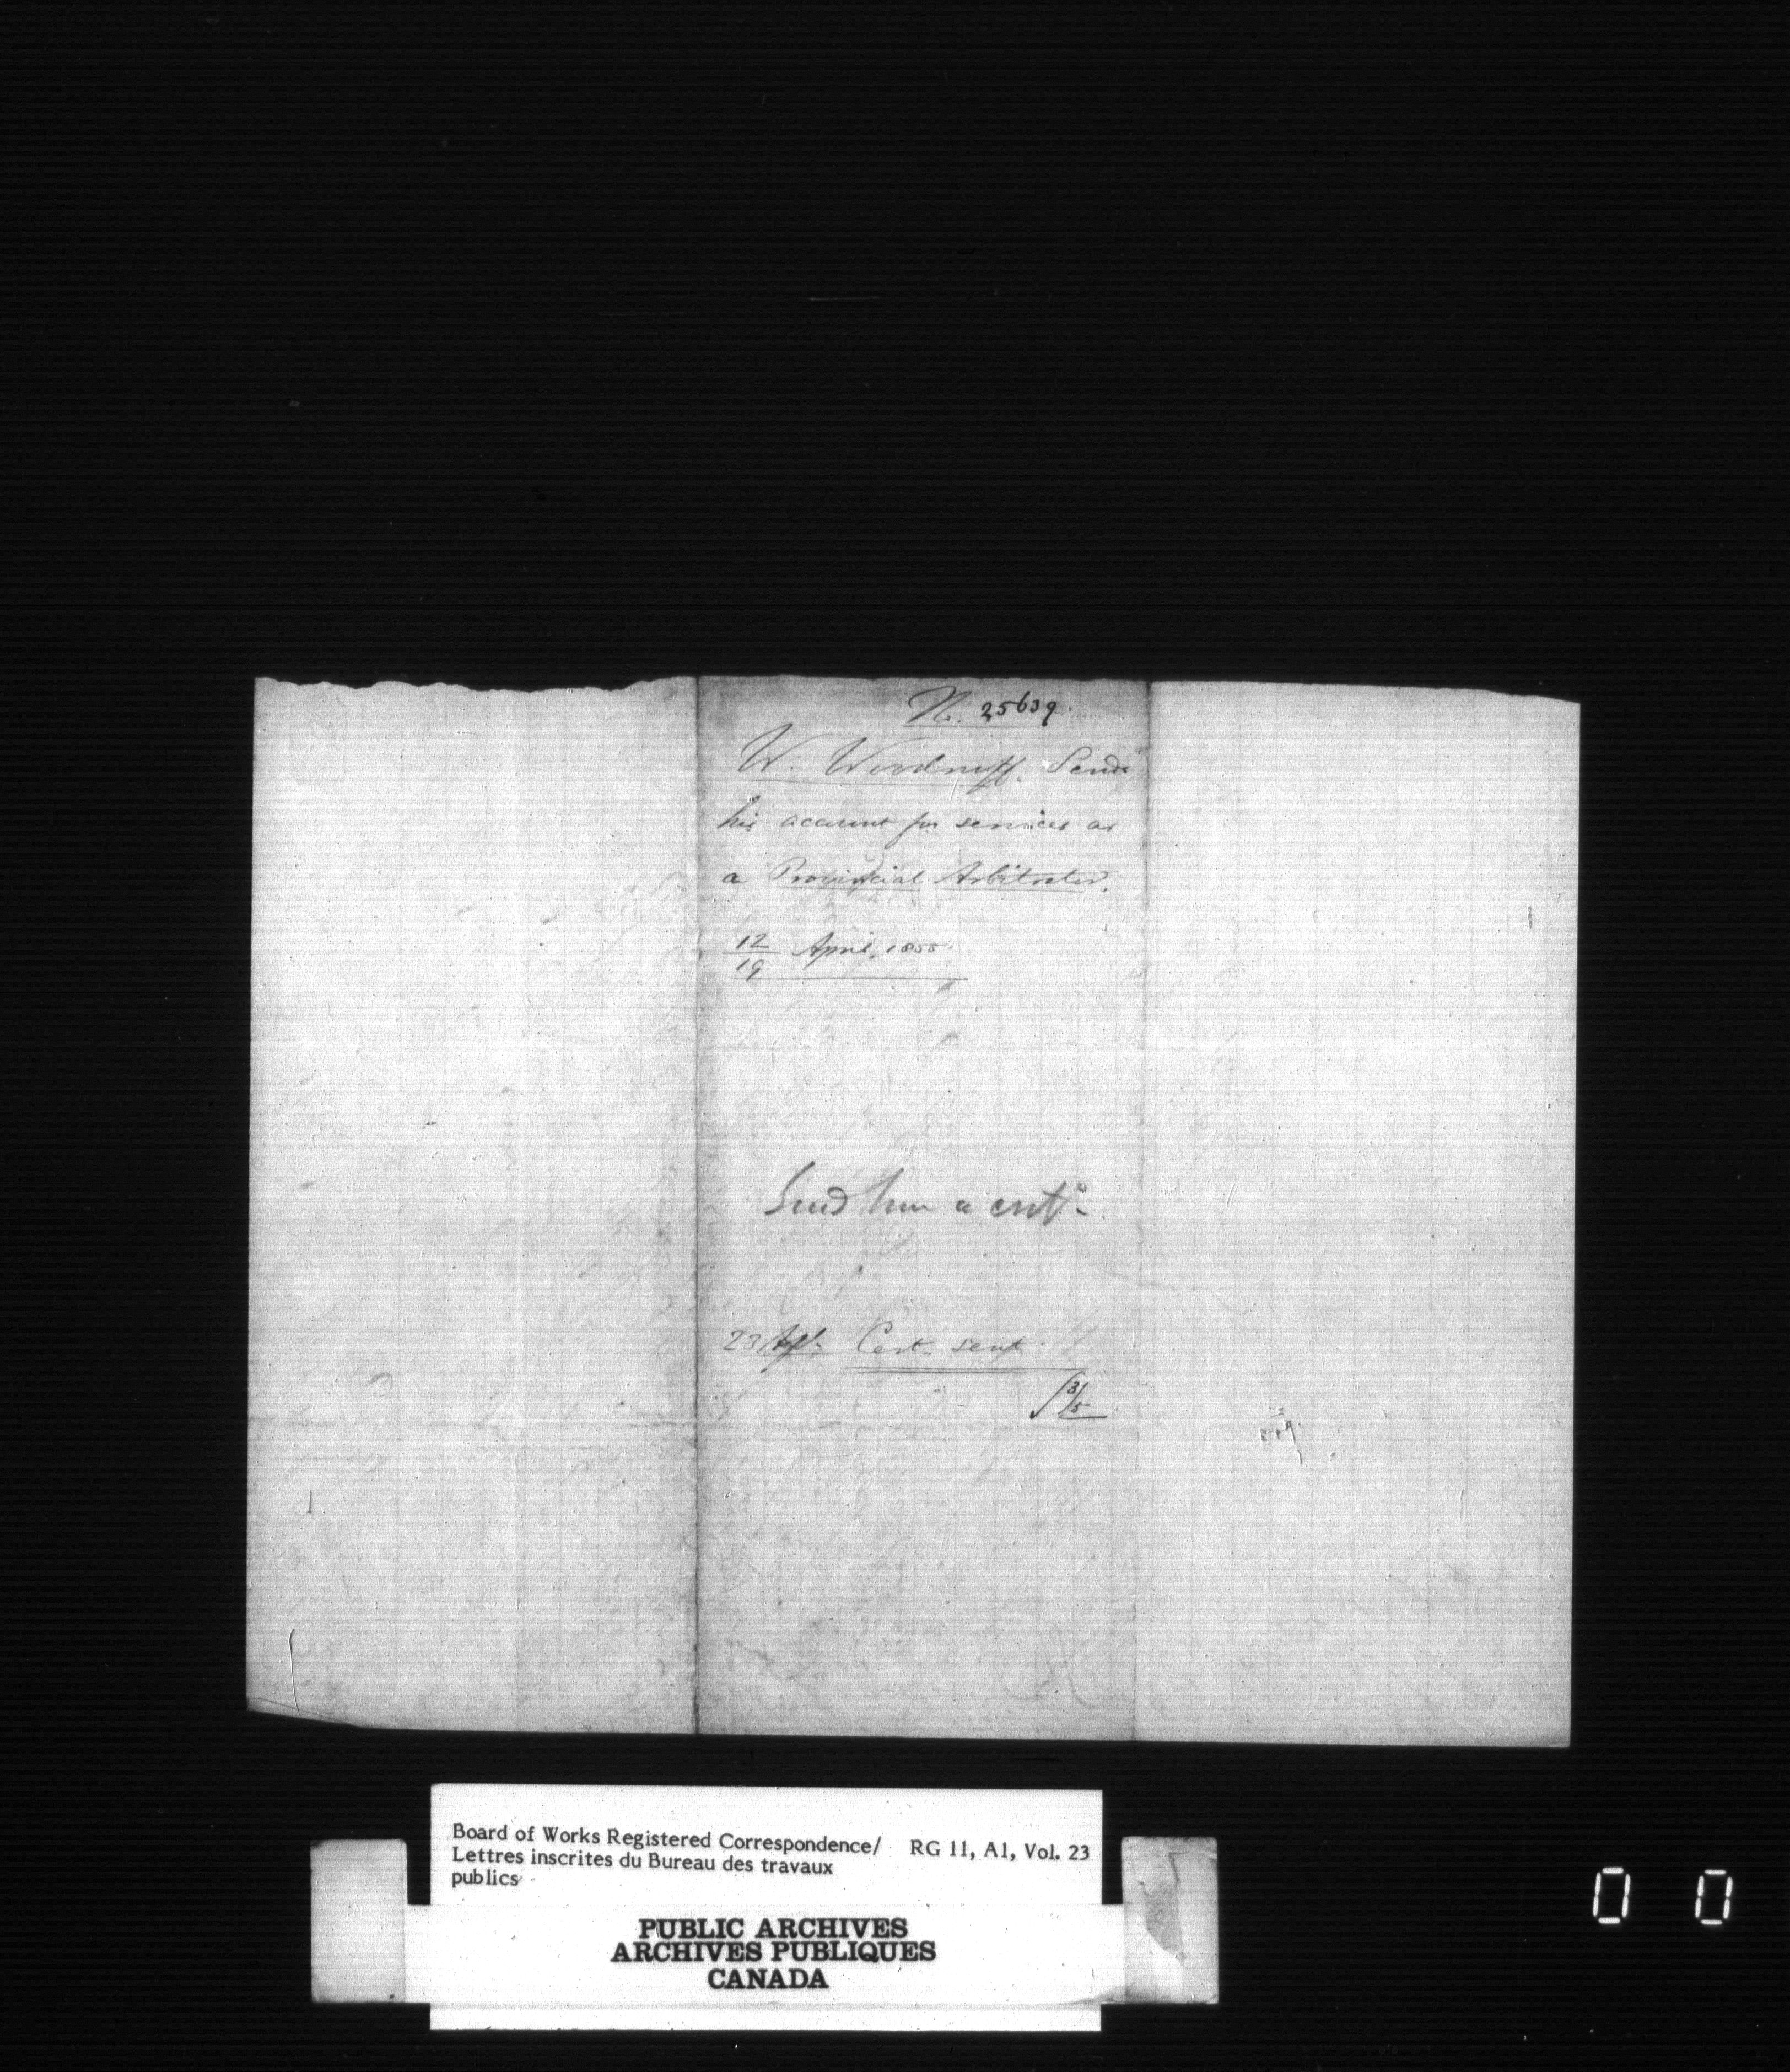 No. 25639.
W. Woodruff. Sends
his account for services as
a Provincial Arbitrator.
12
19 April, 1855.
Send him a certe.
23 Apl. Cert. sent.
3/5
Board of Works Registered Correspondence/
Lettres inscrites du Bureau des travaux
publics
RG 11, A1, Vol. 23
PUBLIC ARCHIVES
ARCHIVES PUBLIQUES
CANADA
0 0